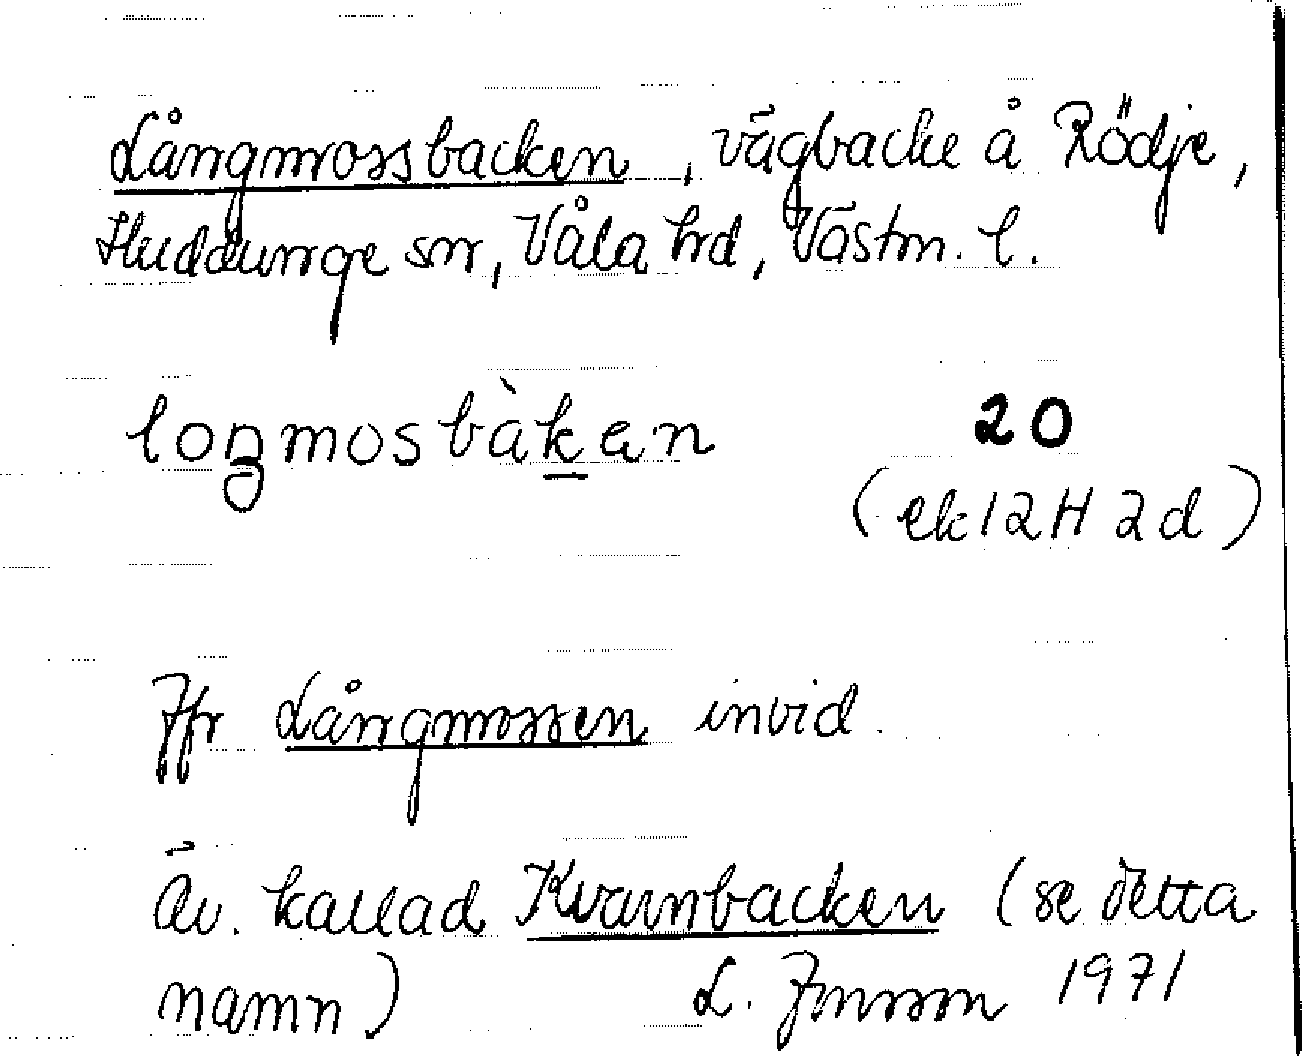 Långmossbacken, vägbacke å Rödje,
Huddunge sn, Våla hrd, Västm. l.
loŋmosbàkan 20
(ek 12H 2d)
Jfr Långmossen invid
Äv. kallad Kvarnbacken (se detta
namn) L. Jonsson 1971